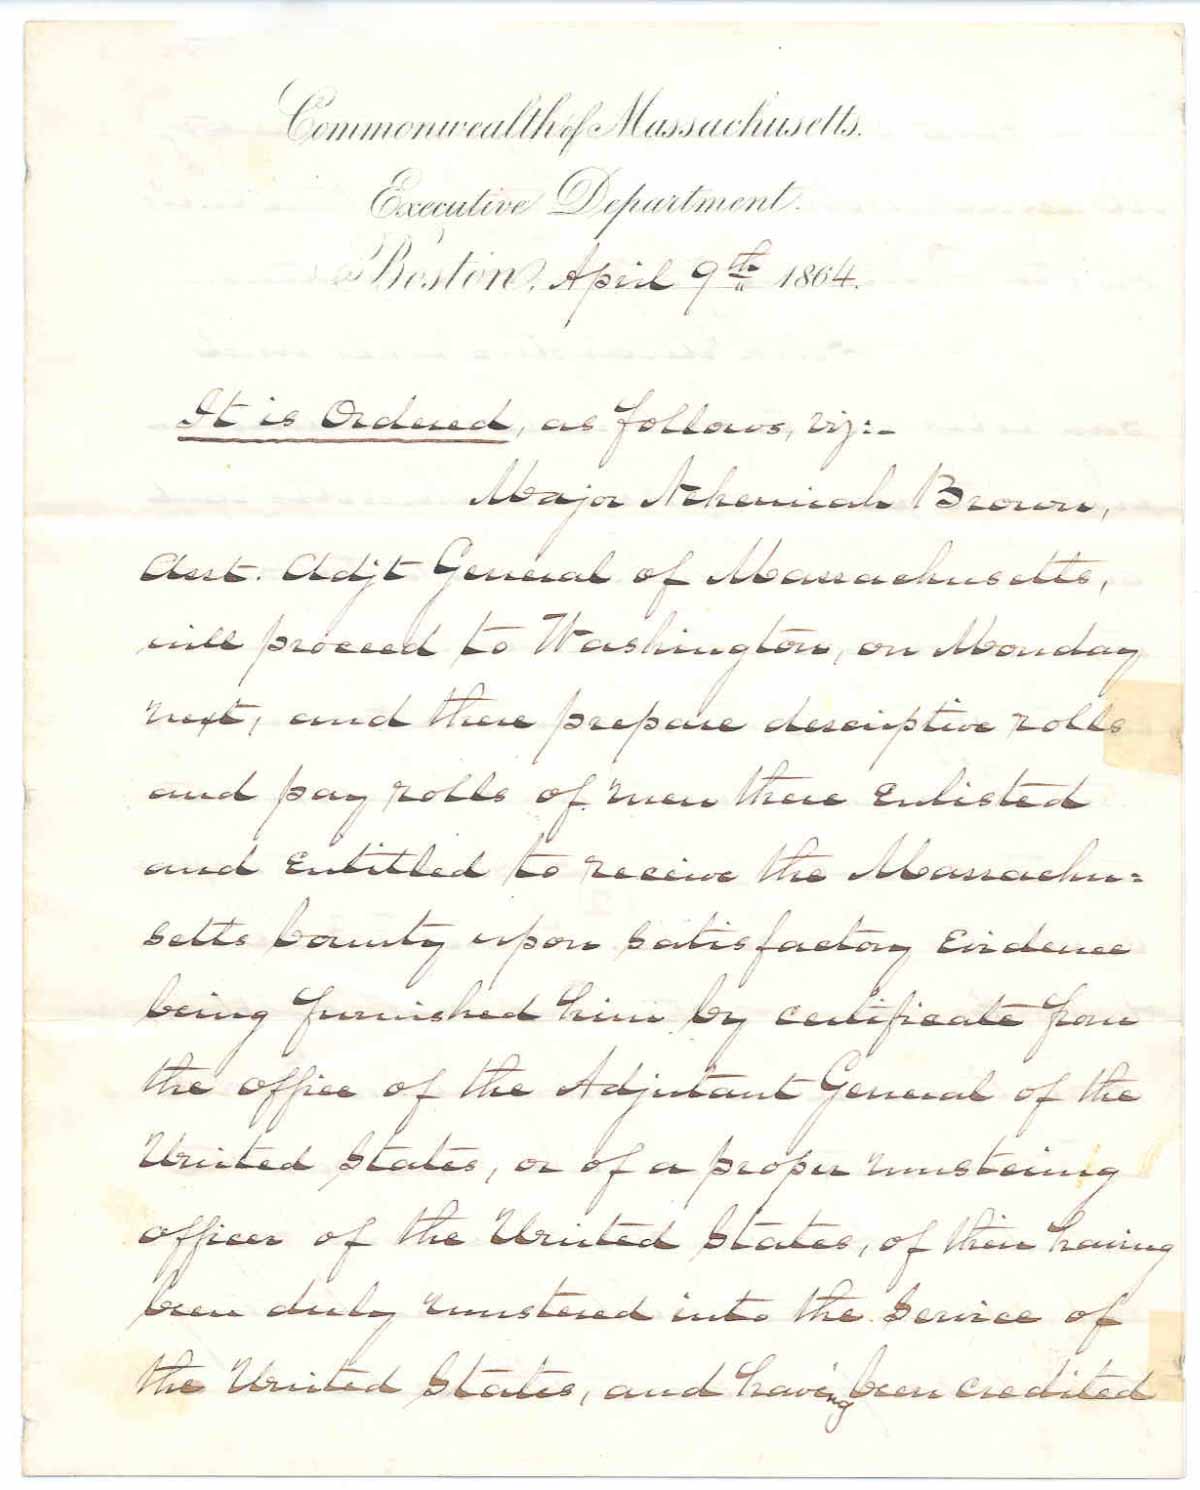 Commonwealth of Massachusetts.
Executive Department.
Boston, April 9th 1864.
It is Ordered, as follows, viz:-
Major Nehemiah Brown,
Asst. Adjt General of Massachusetts,
will proceed to Washington, on Monday
next, and there prepare descriptive rolls
and pay rolls of men there enlisted
and entitled to receive the Massachu=
setts bounty upon satisfactory evidence
being furnished him by certificate from
the office of the Adjutant General of the
United States, or of a proper mustering
officer of the United States, of their having
been duly mustered into the service of
the United States, and having been credited